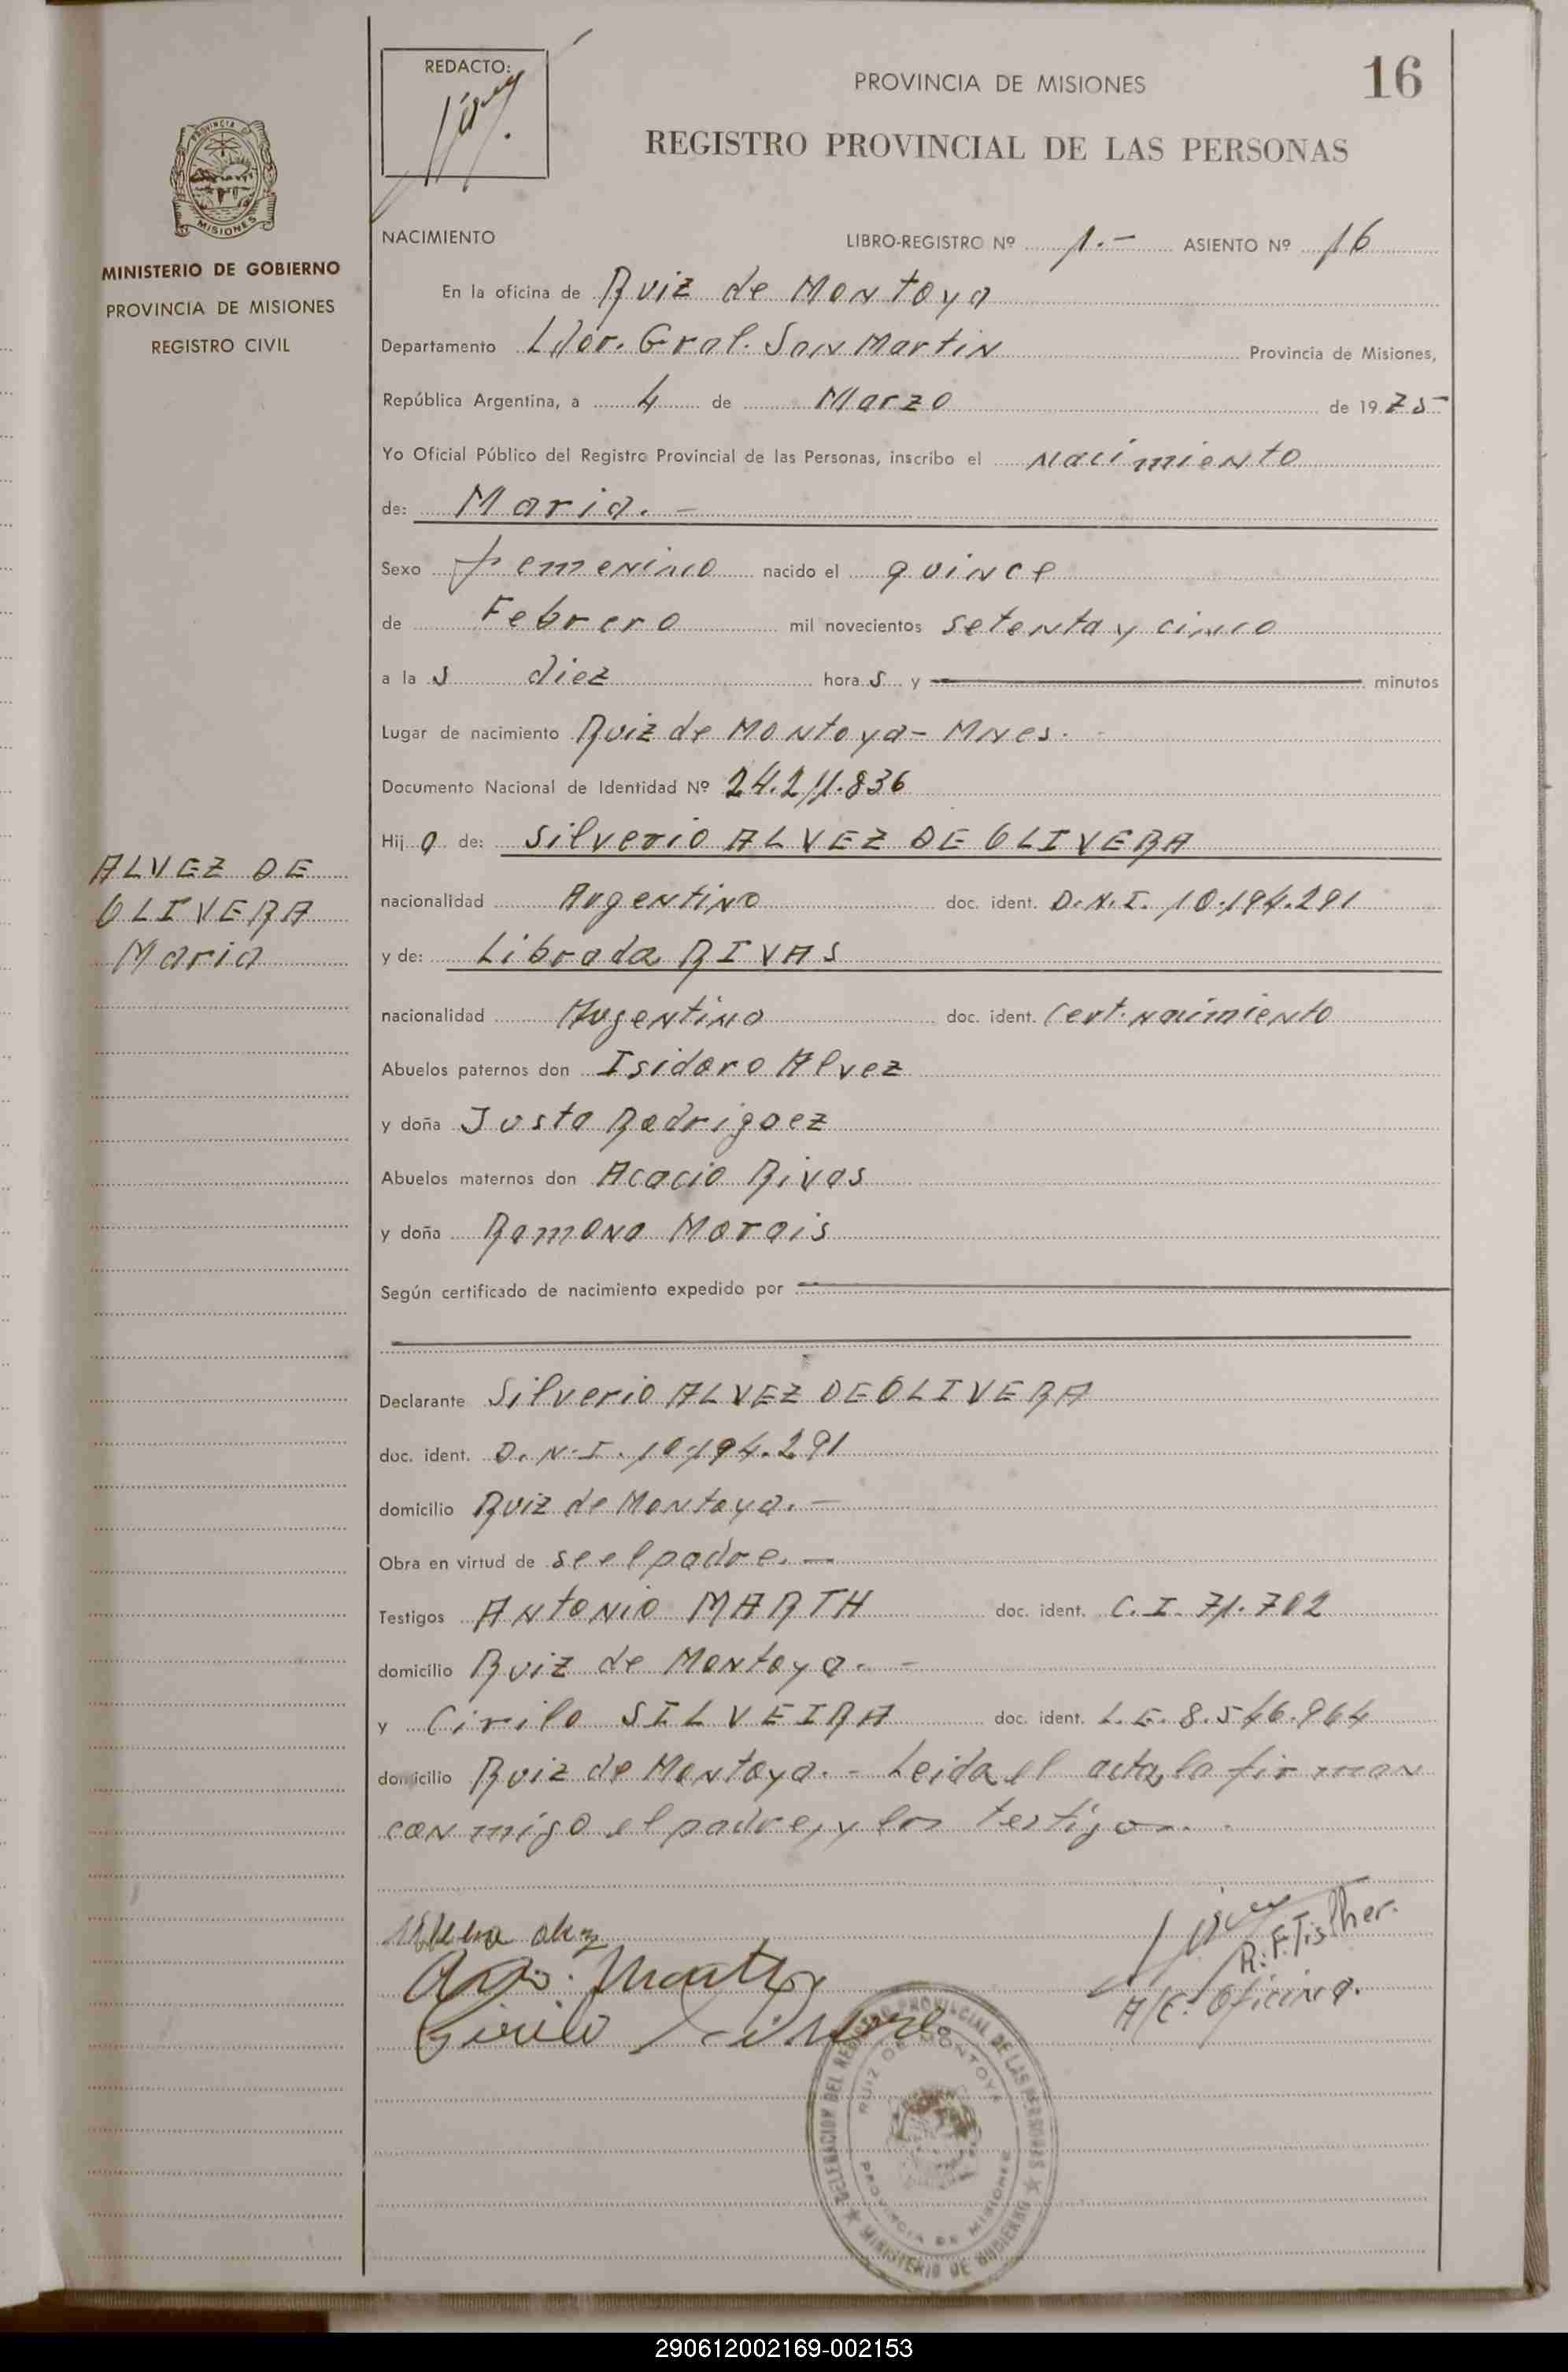 REDACTO:
PROVINCIA DE MISIONES
16
REGISTRO PROVINCIAL DE LAS PERSONAS
PROVINCIA DE
MISIONES
MINISTERIO DE GOBIERNO
PROVINCIA DE MISIONES
REGISTRO CIVIL
NACIMIENTO LIBRO-REGISTRO Nº 1.- ASIENTO Nº 16
En la oficina de Ruiz de Montoya
Departamento Ldor. Gral. San Martin Provincia de Misiones,
República Argentina, a 4 de Marzo de 1975
Yo Oficial Público del Registro Provincial de las Personas, inscribo el nacimiento
de: Maria. -
Sexo femenino nacido el quince
de Febrero mil novecientos setenta y cinco
a la s diez hora s y minutos
Lugar de nacimiento Ruiz de Montoya - Mnes. -
Documento Nacional de Identidad Nº 24.211.836
Hij a de: Silverio ALVEZ DE OLIVERA
ALVEZ DE
OLIVERA
Maria
nacionalidad Argentino doc. ident. D.N.I. 10.194.291
y de: Librada RIVAS
nacionalidad Argentina doc. ident. Cert. nacimiento
Abuelos paternos don Isidoro Alvez
y doña Justa Rodriguez
Abuelos maternos don Acacio Rivas
y doña Ramona Morais
Según certificado de nacimiento expedido por
Declarante Silverio ALVEZ DE OLIVERA
doc. ident. D.N.I. 10.194.291
domicilio Ruiz de Montoya. -
Obra en virtud de se el padre. -
Testigos Antonio MARTH doc. ident. C.I. 71.702
domicilio Ruiz de Montoya. -
y Cirilo SILVEIRA doc. ident. L.E. 8.546.964
domicilio Ruiz de Montoya. - Leida el acta, la firman
conmigo el padre, y los testigos.
R. F. Fisher.
A/C. Oficina.
DELEGACION DEL REGISTRO PROVINCIAL DE LAS PERSONAS
RUIZ DE MONTOYA
PROVINCIA DE MISIONES
MINISTERIO DE GOBIERNO
290612002169-002153